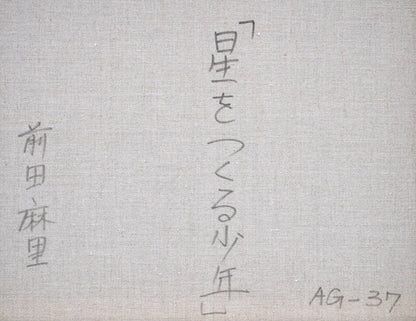 「星をつくる少年」
前田麻里
AG-37